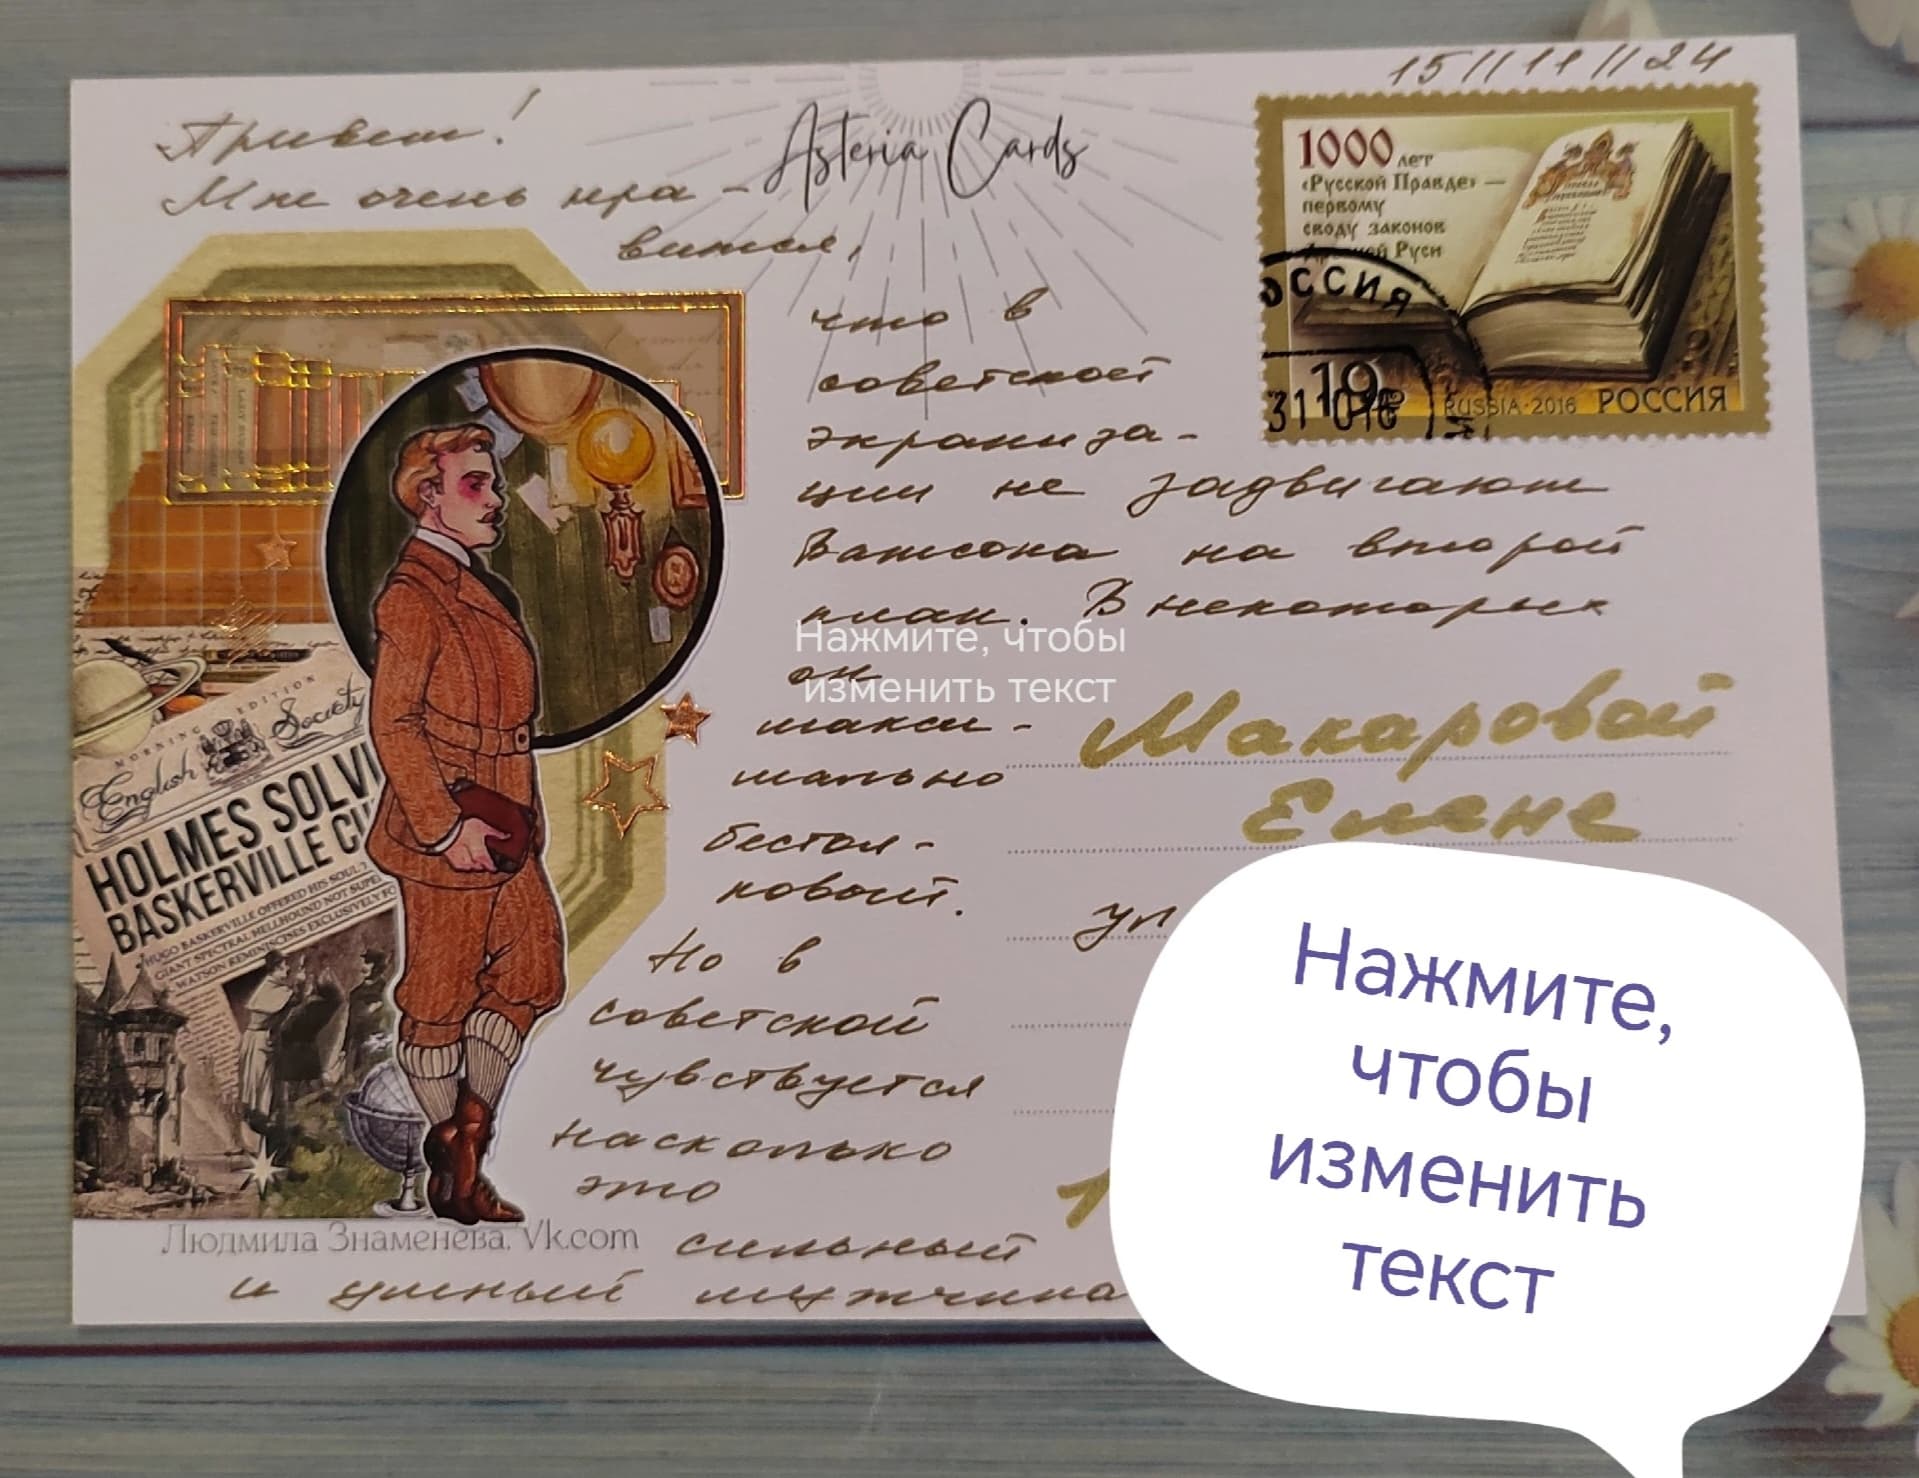 15//11//24
Привет!
Мне очень нра-
вится,
Asteria Cards
1000 лет
«Русской Правде» —
первому
своду законов
Древней Руси
РОССИЯ
19
31 016
RUSSIA·2016 РОССИЯ
что в
советской
экраниза-
ции не задвигают
Ватсона на второй
план. В некоторых
он
макси-
мально
бестол-
ковый.
Но в
советской
чувствуется
насколько
это
сильный
и умный мужчина
Нажмите, чтобы
изменить текст
Макаровой
Елене
ул
MORNING EDITION
English Society
HOLMES SOLV
BASKERVILLE C
HUGO BASKERVILLE OFFERED HIS SOUL
GIANT SPECTRAL HELLHOUND NOT SUPE
WATSON REMINISCES EXCLUSIVELY FO
Людмила Знаменева. Vk.com
Нажмите,
чтобы
изменить
текст